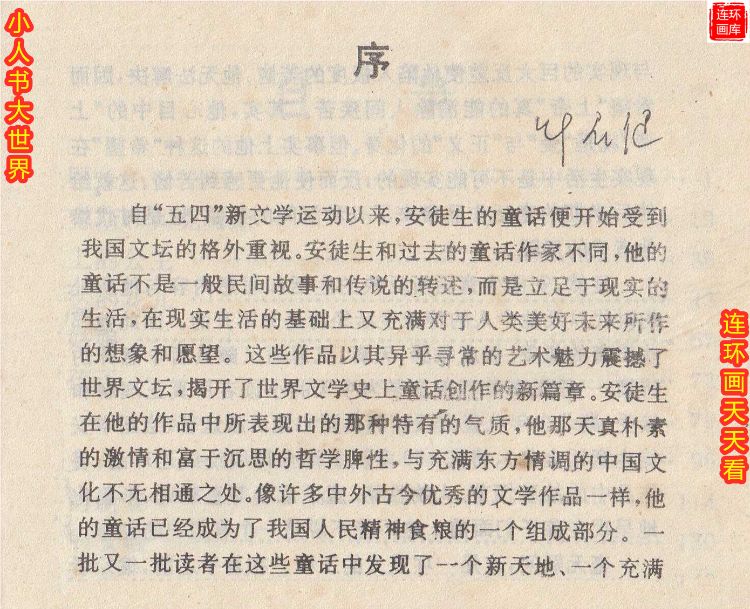 小人书大世界
连环
画库
序
叶君健
自“五四”新文学运动以来,安徒生的童话便开始受到
我国文坛的格外重视。安徒生和过去的童话作家不同,他的
童话不是一般民间故事和传说的转述,而是立足于现实的
生活,在现实生活的基础上又充满对于人类美好未来所作
的想象和愿望。这些作品以其异乎寻常的艺术魅力震撼了
世界文坛,揭开了世界文学史上童话创作的新篇章。安徒生
在他的作品中所表现出的那种特有的气质,他那天真朴素
的激情和富于沉思的哲学脾性,与充满东方情调的中国文
化不无相通之处。像许多中外古今优秀的文学作品一样,他
的童话已经成为了我国人民精神食粮的一个组成部分。一
批又一批读者在这些童话中发现了一个新天地、一个充满
连环画天天看